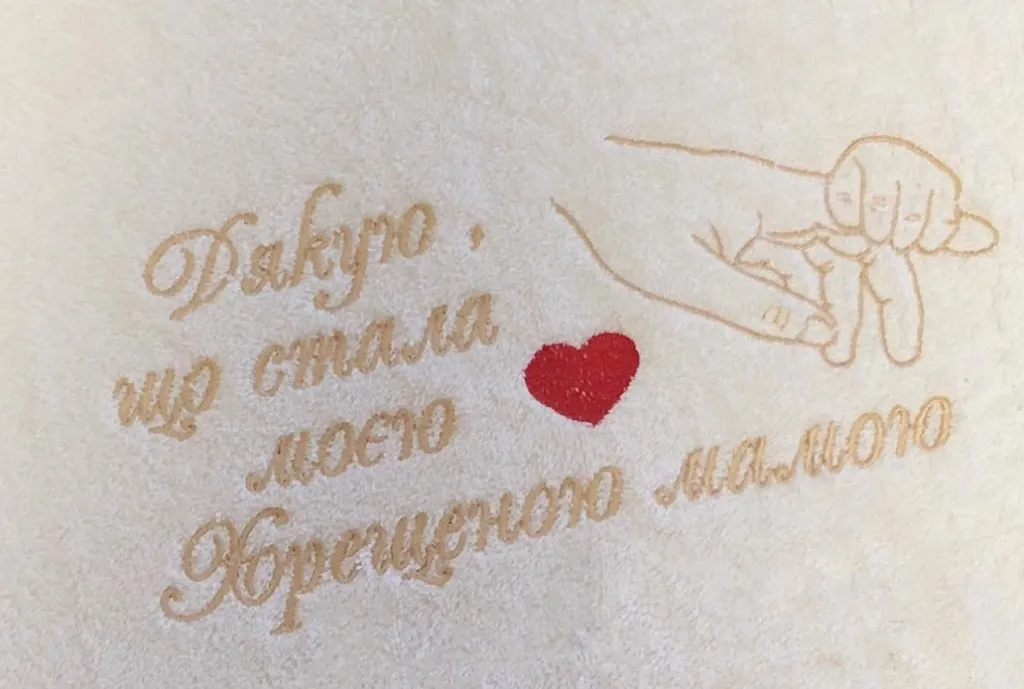 Дякую ,
що стала
моєю
Хрещеною мамою